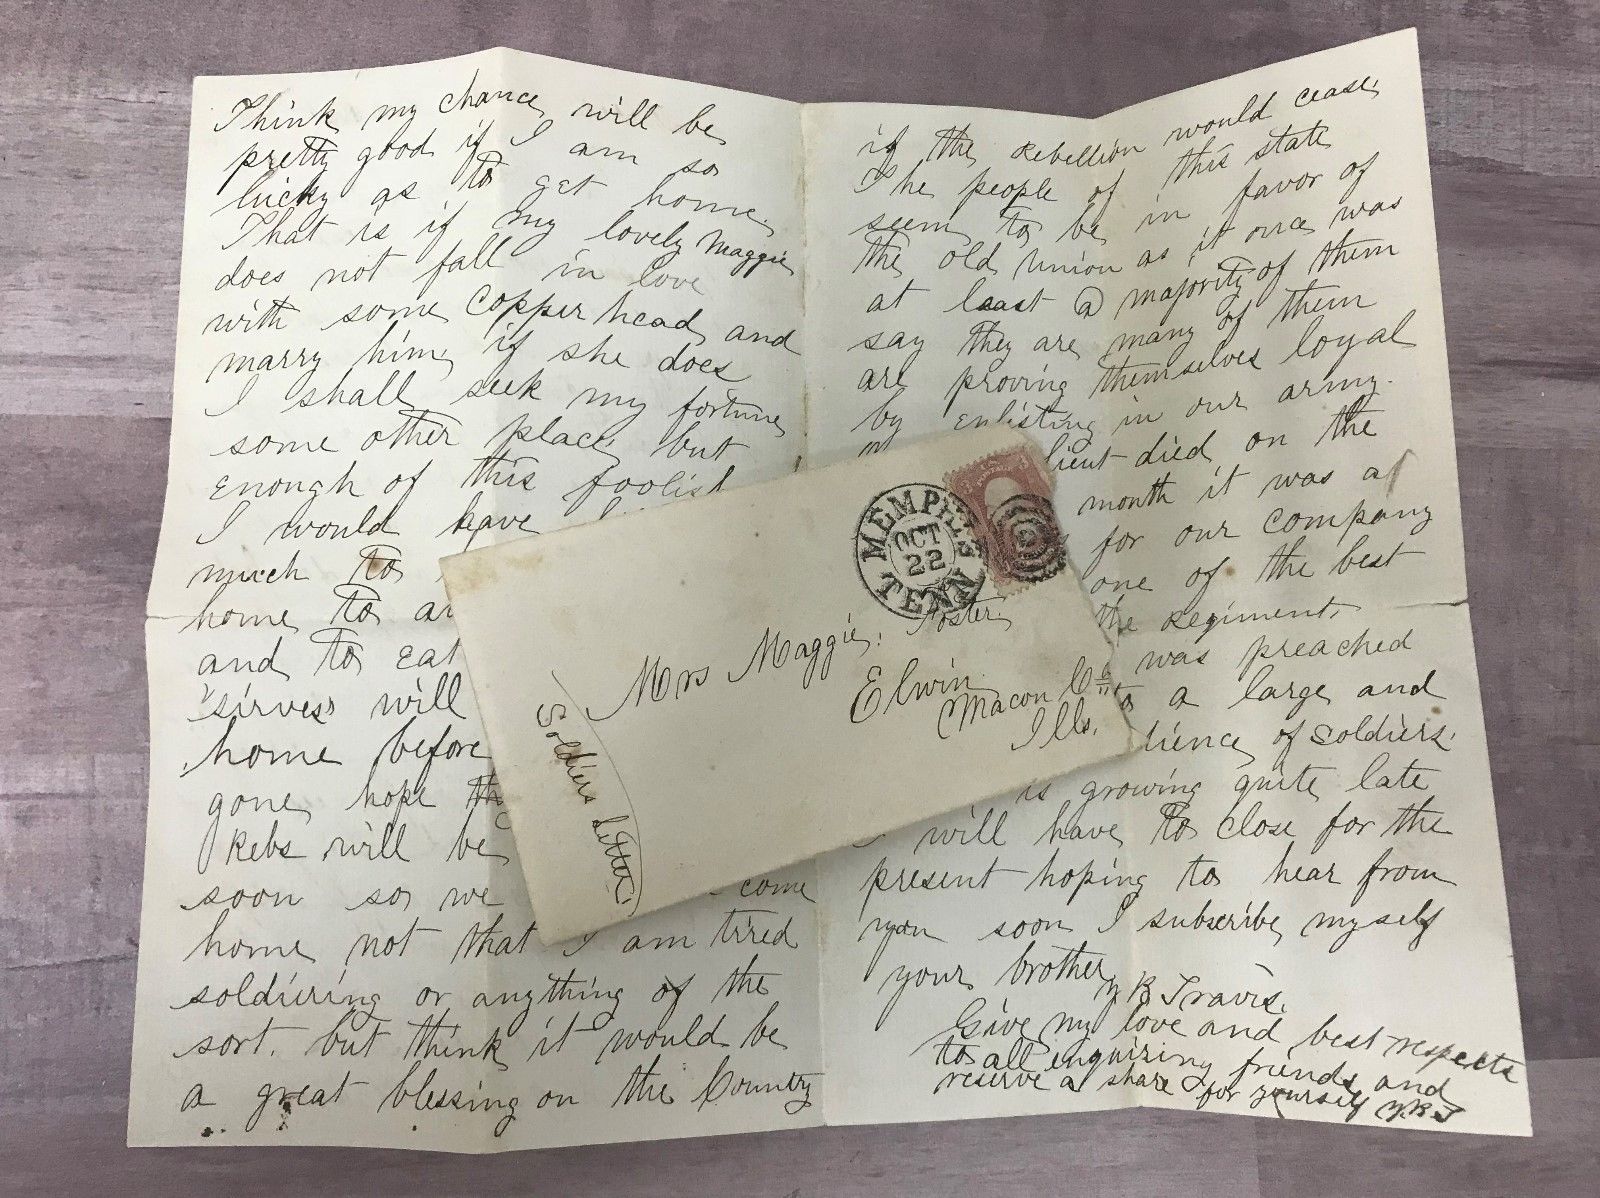 Think my chance will be
pretty good if I am so
lucky as to get home.
That is if my lovely Maggie
does not fall in love
with some Copper head and
marry him, if she does
I shall seek my fortune
some other place, but
enough of this foolish
I would have
much to
home to
and to eat
will
home before
gone, hope the
Rebs will be
soon so we come
home not that I am tired
soldiering or anything of the
sort. but think it would be
a great blessing on the Country
if the Rebellion would cease,
The people of this state
seem to be in favor of
the old Union as it once was
at least a majority of them
say they are, many of them
are proving themselves loyal
by enlisting in our army.
lieut died on the
month it was a
for our company
one of the best
the Regiment.
was preached
to a large and
of soldiers.
is growing quite late
I will have to close for the
present hoping to hear from
you soon I subscribe myself
your brother,
Travis.
Give my love and best respects
to all enquiring friends and
reserve a share for yourself
MEMPHIS
OCT
22
TENN
Mrs Maggie Foster
Elwin
Macon Co
Ills.
Soldiers Letter